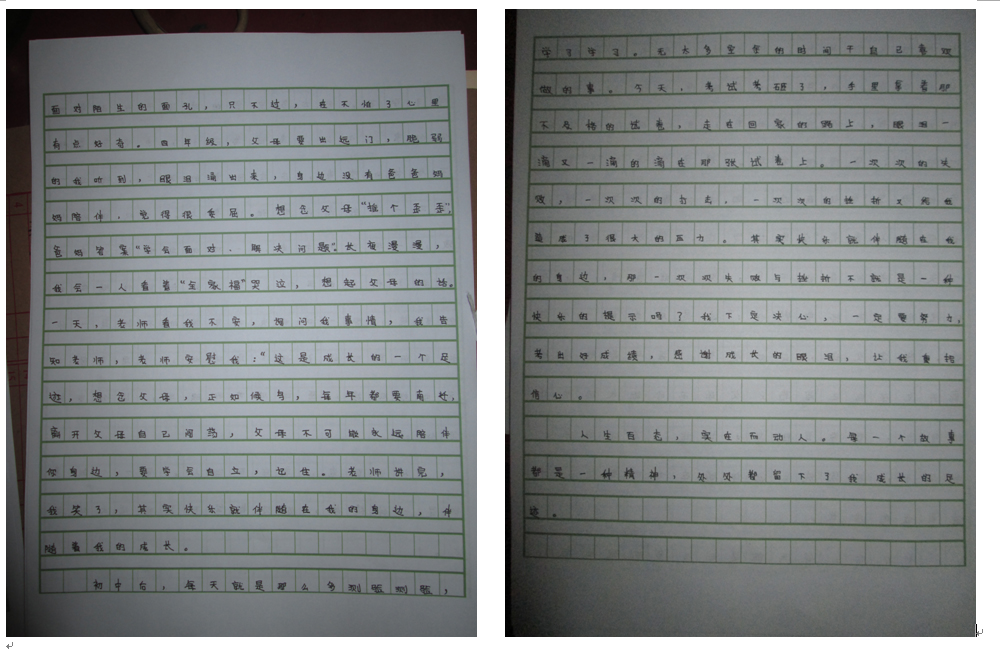 面对陌生的面孔，只不过，在不怕了心里
有点好奇。四年级，父母要出远门，脆弱
的我听到，眼泪滴出来，身边没有爸爸妈
妈陪伴，觉得很委屈。想念父母
爸妈答案"学会面对·解决问题"。长夜漫漫，
我会一人看着"全家福"哭泣，想起父母的话。
一天，老师看我不安，询问我事情，我告
知老师，老师安慰我："这是成长的一个足
迹，想念父母，正如候鸟，每年都要南迁，
离开父母自己闯荡，父母不可能永远陪伴
你身边，要学会自立，记住。老师讲完，
我笑了，其实快乐就伴随在我的身边，伴
随着我的成长。
初中后，每天就是那么多测验测验，
学了学了。无太多空余的时间干自己喜欢
做的事。今天，考试考砸了，手里拿着那
不及格的试卷，走在回家的路上，眼泪一
滴又一滴的滴在那张试卷上。一次次的失
败，一次次的打击，一次次的挫折又给我
造成了很大的压力。其实快乐就伴随在我
的身边，那一次次失败与挫折不就是一种
快乐的提示吗？我下定决心，一定要努力，
考出好成绩，感谢成长的眼泪，让我重拾
信心。
人生百态，实在感动人。每一个故事
都是一种精神，处处都留下了我成长的足
迹。